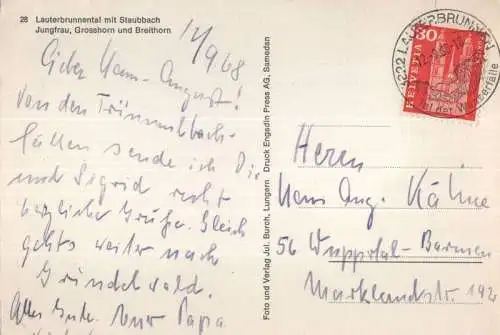 28 Lauterbrunnental mit Staubbach
Jungfrau, Grosshorn und Breithorn
12/9/68
Lieber Hans-August!
Von den Trümmelbach-
fällen sende ich Dir
und Sigrid recht
herzliche Grüße. Gleich
gehts weiter nach
Grindelwald.
Alles Gute. Euer Papa
Foto und Verlag Jul. Burch, Lungern Druck Engadin Press AG, Samedan
3822 LAUTERBRUNNEN
HELVETIA
30
Tal der Wasserfälle
Herrn
Hans Aug. Kähne
56 Wuppertal-Barmen
Marklandstr. 192